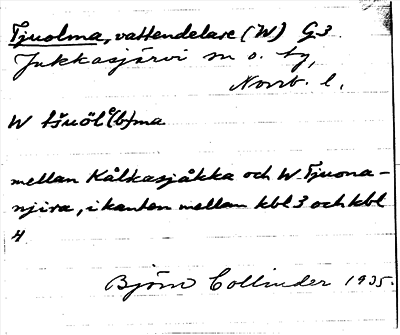 Tjuolma, vattendelare (W) G3
Jukkasjärvi sn o. tg,
Norrb. l.
W tšuöl(b)ma
mellan Kålkasjåkka och W Tjuona-
njira, i kanten mellan kbl 3 och kbl
4
Björn Collinder 1935.